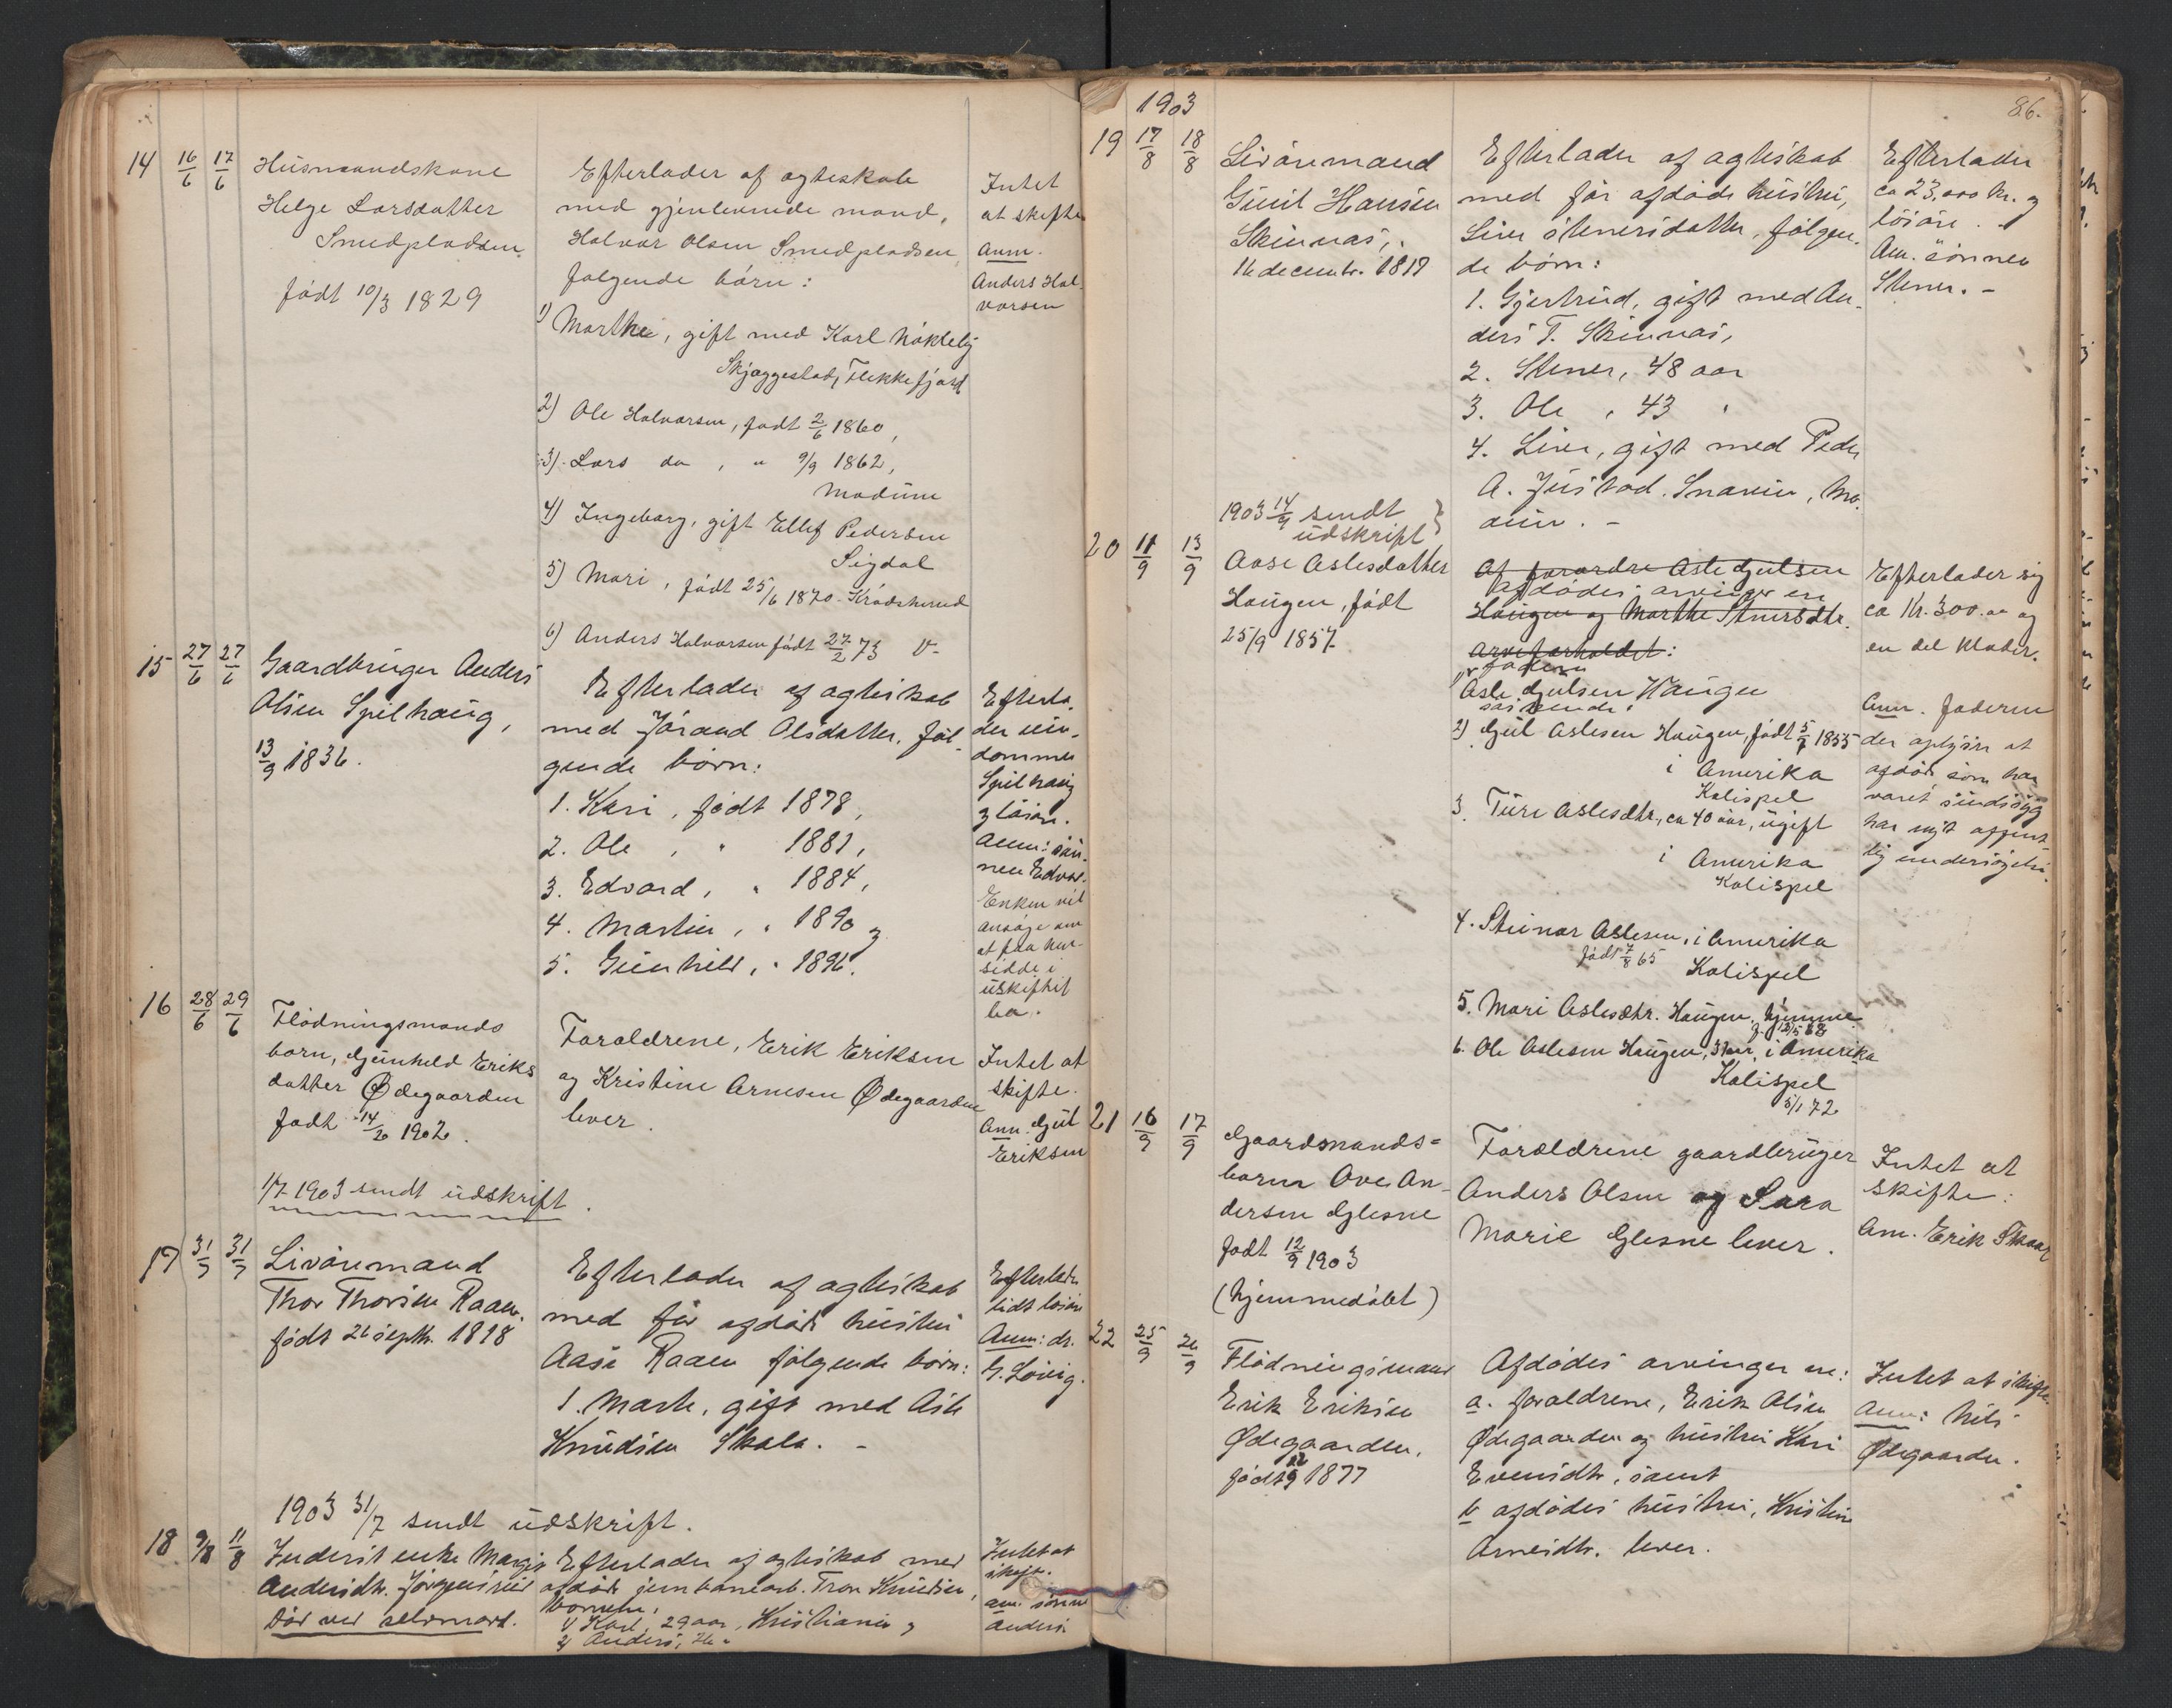 14 16/6 17/6
Husmandskone
Helge Larsdatter
Smedpladsen
født 10/3 1829
Efterlader af ægteskab
med gjenlevende mand,
Halvor Olsen Smedpladsen
følgende børn:
1) Marthe, gift med Karl
Flekkefjord
2) Ole Halvorsen, født 2/6 1860,
3) Lars do, " 9/9 1862,
Modum
4) Ingeborg, gift Ellef Pedersen
Sigdal
5) Mari, født 25/6 1870 Krødsherred
6) Anders Halvorsen født 27/2 73
Intet
at skifte
Anm.
Anders Hal-
vorsen
15 27/6 27/6
Gaardbruger Anders
Olsen Spilhaug,
13/9 1836.
Efterlader af ægteskab
med Jørand Olsdatter, føl-
gende børn:
1. Kari, født 1878,
2. Ole, " 1881,
3. Edvard, " 1884,
4. Martin, " 1890 og
5. Gunhild, " 1896.
Efterla-
der eien-
dommen
Spilhaug
og løsøre.
Anm: søn-
nen Edvar.
Enken vil
ansøge om
at faa hen-
sidde i
uskiftet
bo.
16 28/6 29/6
Flødningsmands
barn, Gunhild Eriks
datter Ødegaarden
født 14/2 1902.
Forældrene, Erik Eriksen
og Kristine Arnesen Ødegaarden
lever.
Intet at
skifte.
Anm. Gjul
Eriksen
1/7 1903 sendt udskrift.
17 31/7 31/7
Livøremand
Thor Thorsen Raaen,
født 26 septbr. 1818
Efterlader af ægteskab
med før afdøde hustru
Aase Raaen følgende børn:
1. Marte, gift med Asle
Knudsen Skala. -
Efterlader
lidt løsøre
Anm: dr.
G. Løvig.
1903 31/7 sendt udskrift.
18 9/8 11/8
Inderst enke Margit
Andersdtr. Jørgensrud
Død ved selvmord.
Efterlader af ægteskab med
afdøde jernbanearb. Tron Knudsen,
børnene,
1) Karl, 29 aar, Kristiania og
2) Anders, 26 "
Intet at
skifte.
anm. sønnen
Anders
1903
86.
19 17/8 18/8
Livøremand
Gulil Hansen
Skinnas,
16 decembr. 1819
Efterlader af ægteskab
med før afdøde hustru,
Liver Stenersdatter, følgen-
de børn:
1. Gjertrud, gift med An-
ders T. Skinnas,
2. Stener, 48 aar
3. Ole, 43 "
4. Liver, gift med Peder
A. Justad. Snarum, Mo-
dum. -
Efterlader
ca 23,000 kr. og
løsøre.
Anm. sønnen
Stener. -
1903 14/9 sendt
udskrift
20 11/9 13/9
Aase Aslesdatter
Haugen, født
25/9 1857.
Af forældre Asle Gulsen
Afdødes arvinger er
Haugen og Marthe Stenersdtr.
arveforholdet:
faderen
1) Asle Gulsen Haugen
søskende:
2) Gul Aslesen Haugen, født 5/7 1855
i Amerika
Kalispel
3. Turi Aslesdtr., ca 40 aar, ugift
i Amerika
Kalispel
4. Steinar Aslesen, i Amerika
født 7/8 65
Kalispel
5. Mari Aslesdtr. Haugen, hjemme
f. 12/5 68
6. Ole Aslesen Haugen, 31 aar, i Amerika
Kalispel
5/1 72
Efterlader sig
ca Kr. 300.00 og
en del klæder.
Anm. faderen
der oplyser at
afdøde som har
været sindssyg
har nydt offent-
lig understøttelse.
21 16/9 17/9
Gaardmands-
barn Ove An-
dersen Glesne
født 12/9 1903
(hjemmedøbt)
Forældrene gaardbruger
Anders Olsen og Sara
Marie Glesne lever.
Intet at
skifte:
Anm. Erik Skaar
22 25/9 26/9
Flødningsmand
Erik Eriksen
Ødegaarden,
født 12/9 1877
Afdødes arvinger ere:
a. forældrene, Erik Olsen
Ødegaarden og hustru Kari
Evensdtr., samt
b afdødes hustru, Kristine
Arnesdtr. lever.
Intet at skifte
Anm: Nils
Ødegaarden.